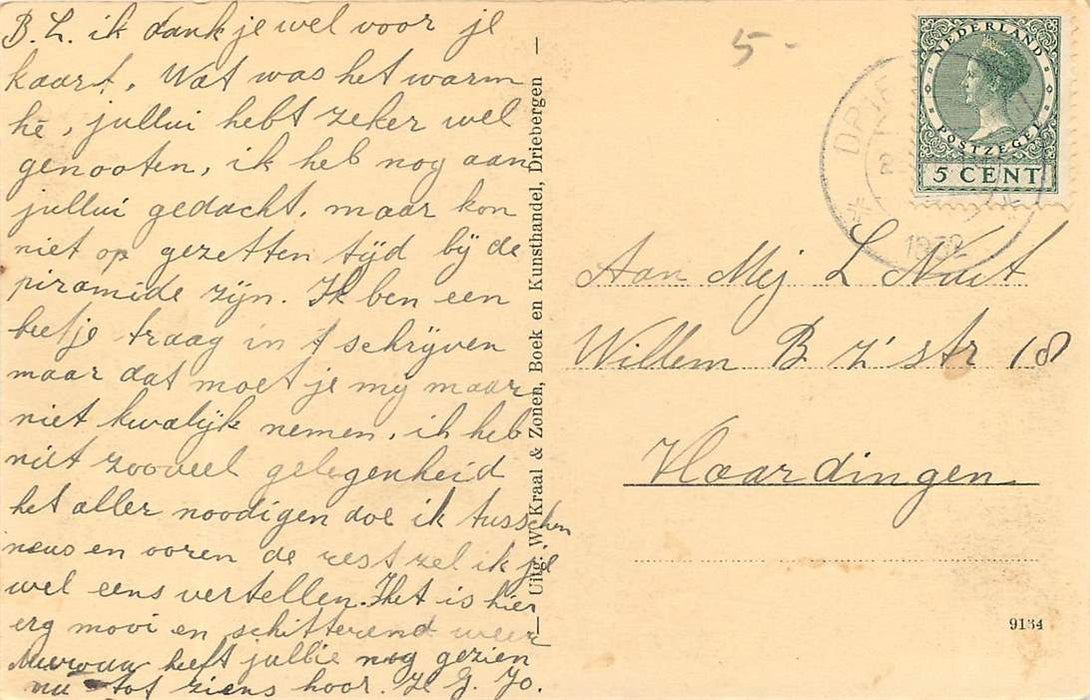 B. L. ik dank je wel voor je
kaart, Wat was het warm
hè, jullui hebt zeker wel
genooten, ik heb nog aan
jullui gedacht, maar kon
niet op gezetten tijd bij de
piramide zijn. Ik ben een
beetje traag in 't schrijven
maar dat moet je mij maar
niet kwalijk nemen, ik heb
niet zooveel gelegenheid
het aller noodigen doe ik tusschen
neus en ooren de rest zel ik je
wel eens vertellen. Het is hier
erg mooi en schitterend weer
Mevrouw heeft jullie nog gezien
nu tot ziens hoor. Je G. Jo.
Uitg. W. Kraal & Zonen, Boek en Kunsthandel, Driebergen
5 -
NEDERLAND
POSTZEGEL
5 CENT
1932
Aan Mej L
Willem B Z' str 18
Vlaardingen
9134